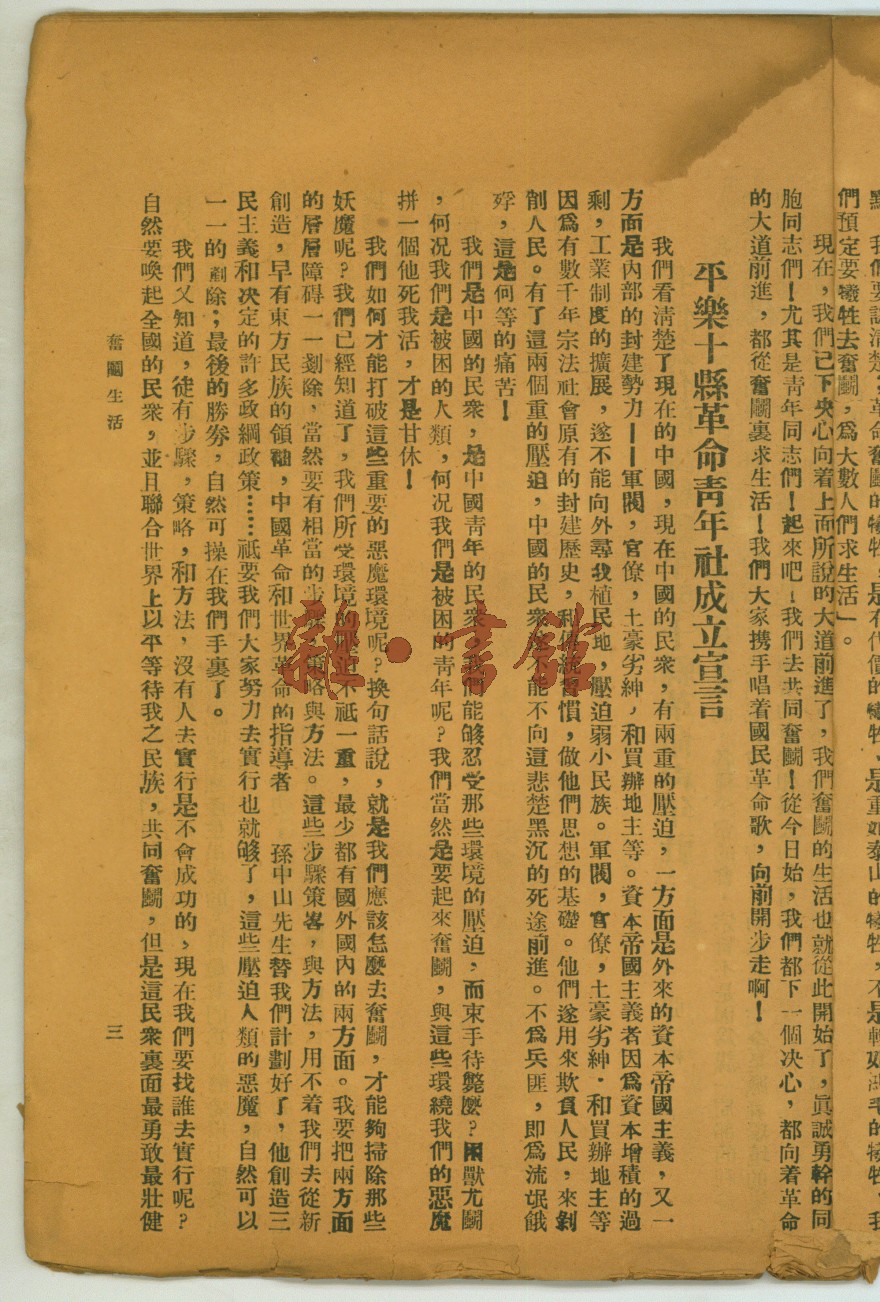 我們要認清楚，革命奮鬭的犧牲，是有代價的犧牲、是重如泰山的犧牲，不是輕如鴻毛的犧牲，我
們預定要犧牲去奮鬭，爲大數人們求生活」。
現在，我們已下央心向着上面所說的大道前進了，我們奮鬭的生活也就從此開始了，眞誠勇幹的同
胞同志們！尤其是靑年同志們！起來吧！我們去共同奮鬭！從今日始，我們都下一個决心，都向着革命
的大道前進，都從奮鬭裏求生活！我們大家携手唱着國民革命歌，向前開步走啊！
平樂十縣革命靑年社成立宣言
我們看淸楚了現在的中國，現在中國的民衆，有兩重的壓迫，一方面是外來的資本帝國主義，又一
方面是內部的封建勢力——軍閥，官僚，土豪劣紳，和買辦地主等。資本帝國主義者因爲資本增積的過
剩，工業制度的擴展，遂不能向外尋找植民地，壓迫弱小民族。軍閥，官僚，土豪劣紳．和買辦地主等
因爲有數千年宗法社會原有的封建歷史，和傳統習慣，做他們思想的基礎。他們遂用來欺負人民，來剝
削人民。有了這兩個重的壓迫，中國的民衆遂不能不向這悲楚黑沉的死途前進。不爲兵匪，即爲流氓餓
殍，這是何等的痛苦！
我們是中國的民衆，是中國靑年的民衆，我們能够忍受那些環境的壓迫，而束手待斃麼？困獸尤鬭
，何况我們是被困的人類，何况我們是被困的靑年呢？我們當然是要起來奮鬭，與這些環繞我們的惡魔
拼一個他死我活，才是甘休！
我們如何才能打破這些重要的惡魔環境呢？換句話說，就是我們應該怎麼去奮鬭，才能夠掃除那些
妖魔呢？我們已經知道了，我們所受環境的壓迫不祗一重，最少都有國外國內的兩方面。我要把兩方面
的層層障碍一一剗除，當然要有相當的步驟，策略與方法。這些步驟策畧，與方法，用不着我們去從新
創造，早有東方民族的領袖，中國革命和世界革命的指導者　孫中山先生替我們計劃好了，他創造三
民主義和决定的許多政綱政策……祗要我們大家努力去實行也就够了，這些壓迫人類的惡魔，自然可以
一一的剷除；最後的勝劵，自然可操在我們手裏了。
我們又知道，徒有步驟，策略，和方法，沒有人去實行是不會成功的，現在我們要找誰去實行呢？
自然要喚起全國的民衆，並且聯合世界上以平等待我之民族，共同奮鬭，但是這民衆裏面最勇敢最壯健
奮鬭生活
三
雜·書館